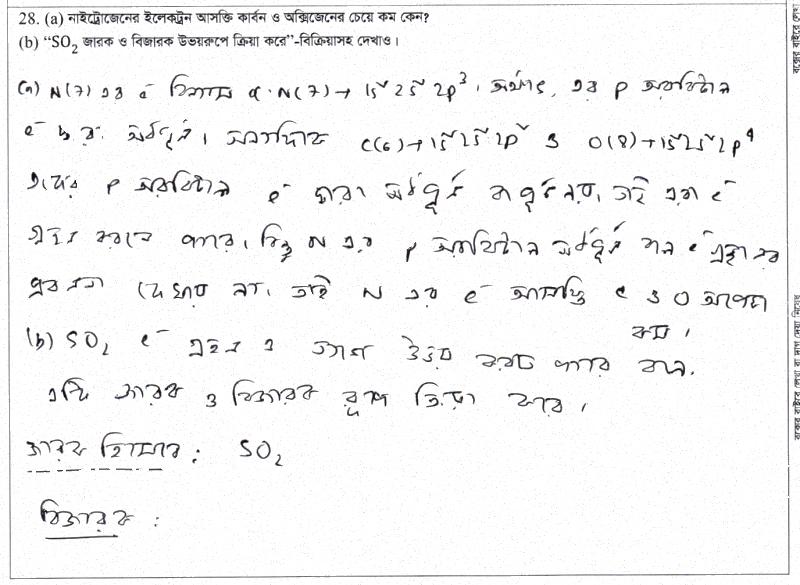 28. (a) নাইট্রোজেনের ইলেকট্রন আসক্তি কার্বন ও অক্সিজেনের চেয়ে কম কেন?
(b) “SO₂ জারক ও বিজারক উভয়রূপে ক্রিয়া করে”-বিক্রিয়াসহ দেখাও।
(a) N(7) এর e⁻ বিন্যাস N(7)→1s² 2s² 2p³. অর্থাৎ, এর p অরবিটাল
e⁻ অর্ধপূর্ণ। অন্যদিকে C(6)→1s² 2s² 2p² ও O(8)→1s² 2s² 2p⁴
এদের p অরবিটাল e⁻ দ্বারা অর্ধপূর্ণ বা পূর্ণ নয়, তাই এরা e⁻
গ্রহন করতে পারে। কিন্তু N এর p অরবিটাল অর্ধপূর্ণ বলে e⁻ গ্রহনের
প্রবনতা দেখায় না। তাই N এর e⁻ আসক্তি C ও O অপেক্ষা
কম।
(b) SO₂ e⁻ গ্রহন ও ত্যাগ উভয় করতে পারে বলে.
এটি জারক ও বিজারক রূপে ক্রিয়া করে।
জারক হিসাবে : SO₂
বিজারক :